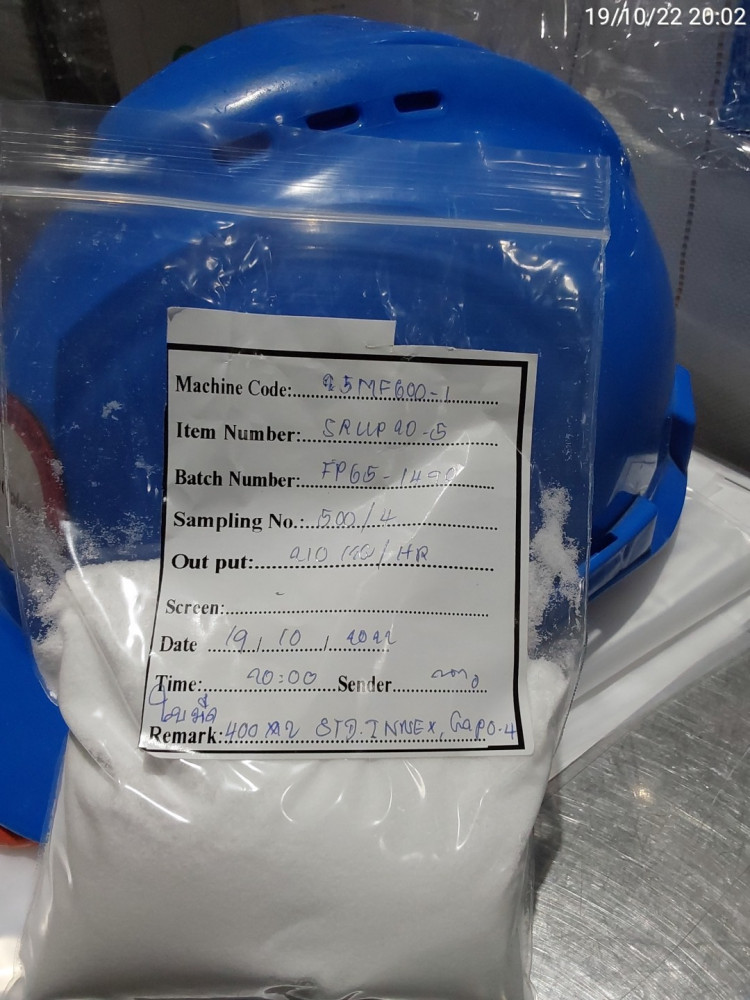 19/10/22 20:02
Machine Code: 25MF600-1
Item Number: SRUP20-5
Batch Number:
Sampling No.: 500/4
Out put: 210 KG/HR
Screen: -
Date 19 / 10 / 2022
Time: 20:00 Sender
ใบมีด
Remark: 400 M2 STD. INNEX, Gap 0.4